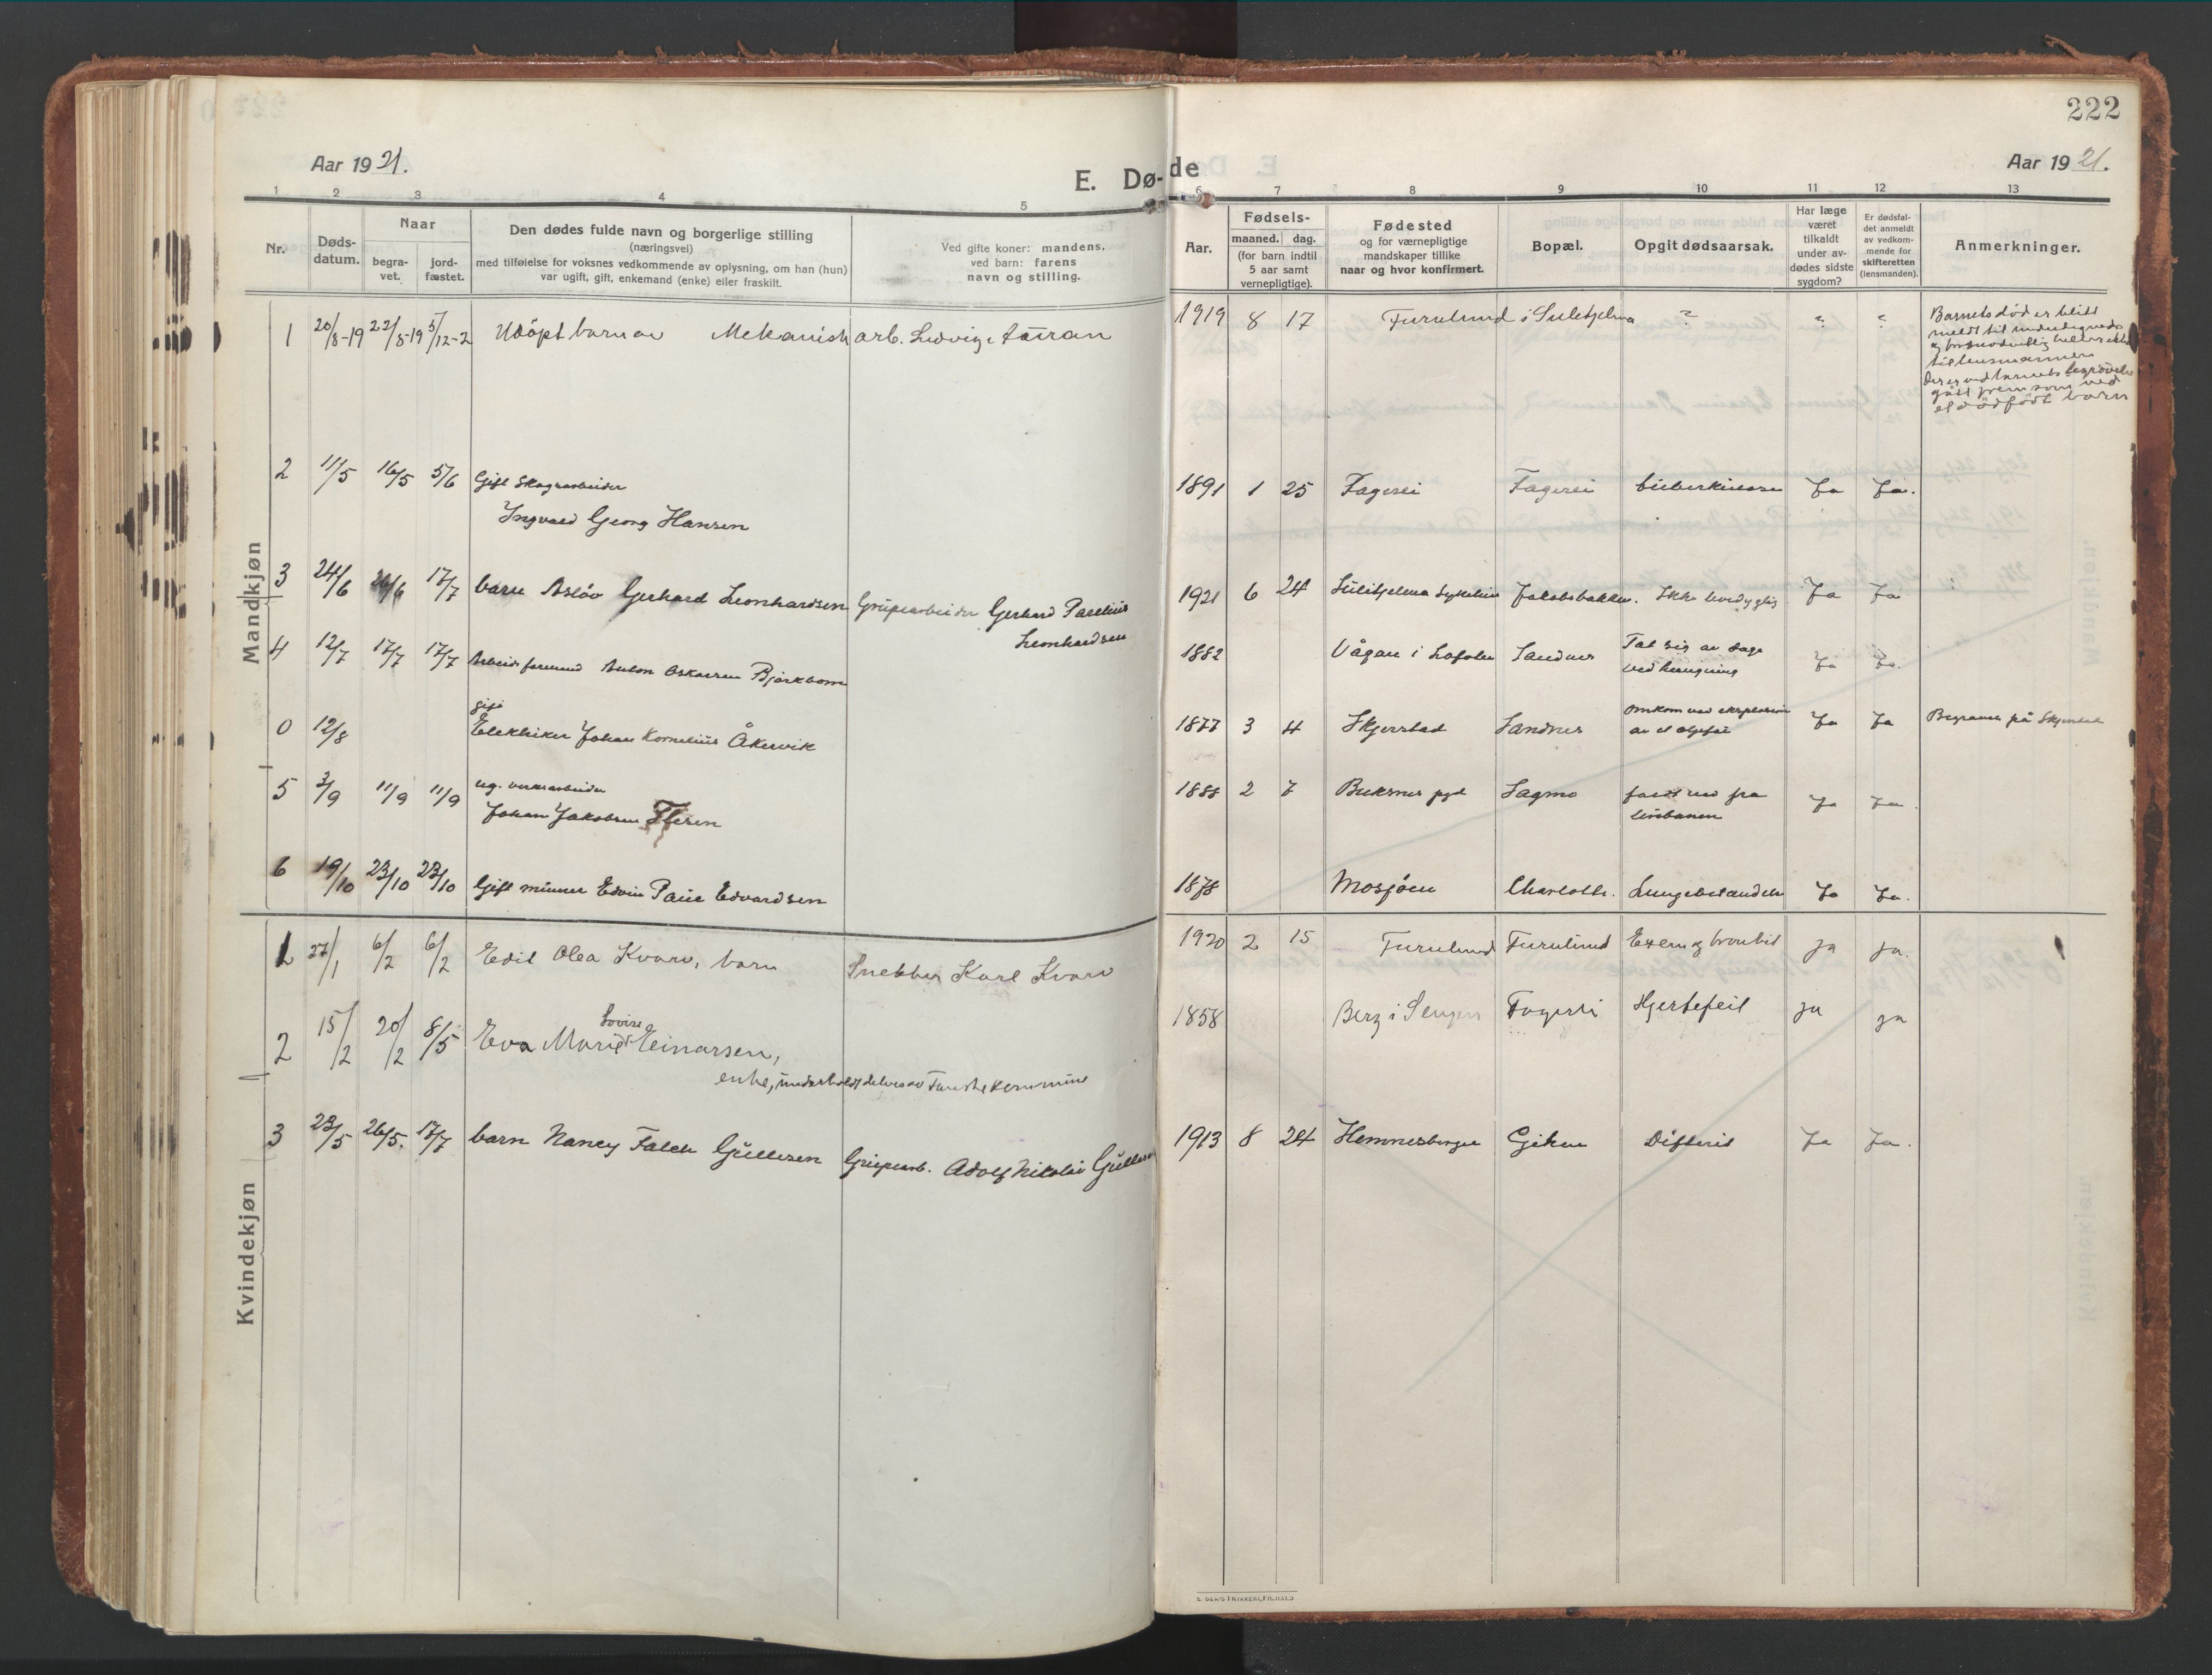 222
Aar 1921.
E. Dø-
de
Aar 1921.
1 2 3 4 5 6 7 8 9 10 11 12 13
Nr.
Døds-
datum.
Naar
begra-
vet.
jord-
fæstet.
Den dødes fulde navn og borgerlige stilling
(næringsvei)
med tilføielse for voksnes vedkommende av oplysning, om han (hun)
var ugift, gift, enkemand (enke) eller fraskilt.
Ved gifte koner: mandens.
ved barn: farens
navn og stilling.
Aar.
Fødsels-
maaned. dag.
(for barn indtil
5 aar samt
vernepligtige).
Fødested
og for værnepligtige
mandskaper tillike
naar og hvor konfirmert.
Bopæl.
Opgit dødsaarsak.
Har læge
været
tilkaldt
under av-
dødes sidste
sygdom?
Er dødsfal-
det anmeldt
av vedkom-
mende for
skifteretten
(lensmanden).
Anmerkninger.
Mandkjøn
1 20/8-19 22/8-19 5/12-2 Udöpt barn av Mekanisk arb. Ludvig 1919 8 17 Furulund i Sulitjelma ? ? ?
Barnets död er blitt
meldt til undertegnede
til lensmannen
Der er ved barnets begravelse
gått frem som ved
et dödfödt barn
2 11/5 16/5 5/6 Gift Skogsarbeider
Ingvald Georg Hansen 1891 1 25 Fagerli Fagerli tuberkulose Ja Ja.
3 24/6 26/6 17/7 barn Asløv Gerhard Leonhardsen Grubearbeider Gerhard Parelius
Leonhardsen 1921 6 24 Sulitjelma Sykehus Jakobsbakken. Ikke levedygtig Ja Ja
4 12/7 17/7 17/7 Arbeidsformand Anton Oskarsen Bjørkbom 1882 Vågan i Lofoten Sandnes Tat sig av dage
ved hengning Ja Ja.
0 12/8 gift
Elektriker Johan Kornelius Åkervik 1877 3 4 Skjerstad Sandnes omkom ved eksplosion
av et oljefat Ja Ja Begraves på Skjerstad
5 3/9 11/9 11/9 ug. verksarbeider
Johan Jakobsen Flesen 1888 2 7 Buksnes pgd Lagmo faldt ned fra
linbanen Ja Ja.
6 19/10 23/10 23/10 Gift minner Edvin Paul Edvardsen 1878 Mosjøen Charlotte. Lungebetændelse Ja Ja.
Kvindekjøn
1 27/1 6/2 6/2 Edil Olea Kvarv, barn Snekker Karl Kvarv 1920 2 15 Furulund Furulund Exem og bronkit ja ja.
2 15/2 20/2 8/5 Eva Marie Lovise Einarsen,
enke, underholdt delvis av Fauske kommune 1858 Berg i Senjen Fagerli Hjertefeil ja ja
3 23/5 26/5. 17/7 barn Nancy Falch Gullesen Grubearb. Adolf Nikolai Gullesen 1913 8 24 Hemnesberget Giken Difterit Ja Ja.